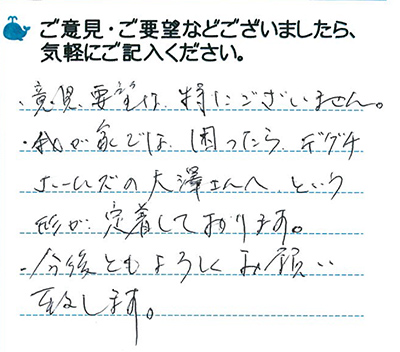 ご意見・ご要望などございましたら、
気軽にご記入ください。
・意見、要望は、特にございません。
・我が家では、困ったら、デグチ
ホームズの大澤さんへ という
形が、定着しております。
・今後ともよろしくお願い
致します。